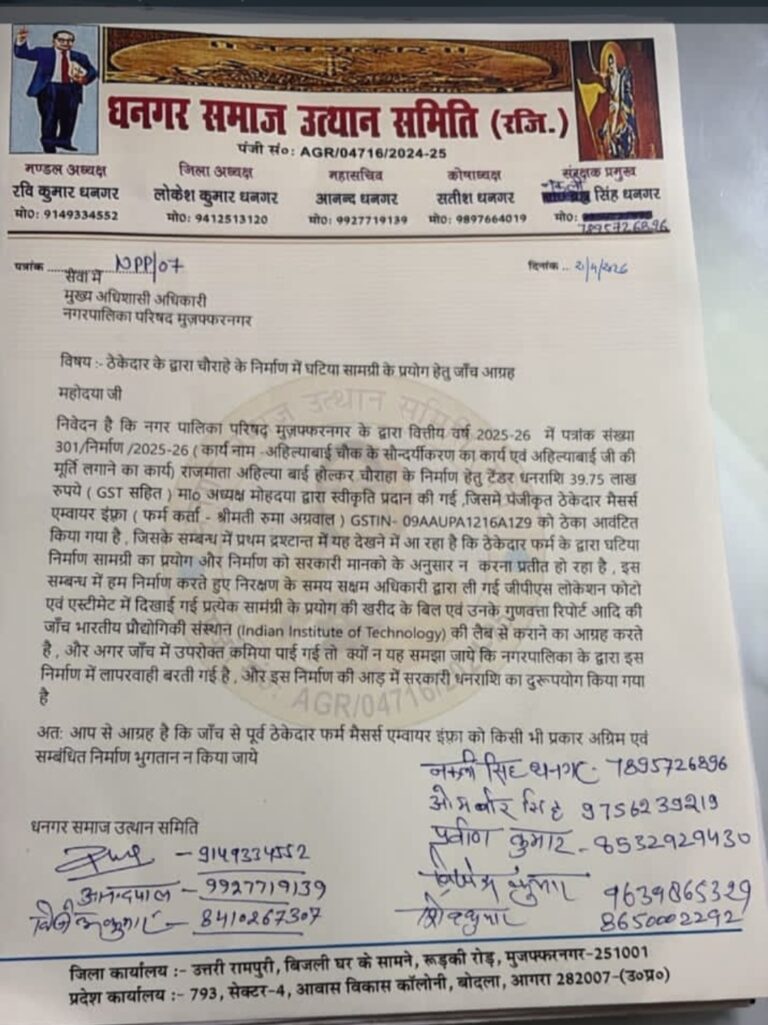 ।। जय मल्हार ।।
धनगर समाज उत्थान समिति (रजि.)
पंजी सं०: AGR/04716/2024-25
मण्डल अध्यक्ष जिला अध्यक्ष महासचिव कोषाध्यक्ष संरक्षक प्रमुख
रवि कुमार धनगर लोकेश कुमार धनगर आनन्द धनगर सतीश धनगर सिंह धनगर
मो०: 9149334552 मो०: 9412513120 मो०: 9927719139 मो०: 9897664019 मो०:
7895726896
पत्रांक ........ NPP/07 दिनांक .. 2/4/2026
सेवा में
मुख्य अधिशासी अधिकारी
नगरपालिका परिषद मुज़फ्फरनगर
विषय :- ठेकेदार के द्वारा चौराहे के निर्माण में घटिया सामग्री के प्रयोग हेतु जाँच आग्रह
महोदया जी
निवेदन है कि नगर पालिका परिषद मुज़फ्फरनगर के द्वारा वित्तीय वर्ष 2025-26 में पत्रांक संख्या
301/निर्माण /2025-26 ( कार्य नाम -अहिल्याबाई चौक के सौन्दर्यीकरण का कार्य एवं अहिल्याबाई जी की
मूर्ति लगाने का कार्य) राजमाता अहिल्या बाई होल्कर चौराहा के निर्माण हेतु टेंडर धनराशि 39.75 लाख
रुपये ( GST सहित ) मा० अध्यक्ष मोहदया द्वारा स्वीकृति प्रदान की गई ,जिसमे पंजीकृत ठेकेदार मैसर्स
एम्वायर इंफ्रा ( फर्म कर्ता - श्रीमती रुमा अग्रवाल ) GSTIN- 09AAUPA1216A1Z9 को ठेका आवंटित
किया गया है , जिसके सम्बन्ध में प्रथम द्रश्टान्त में यह देखने में आ रहा है कि ठेकेदार फर्म के द्वारा घटिया
निर्माण सामग्री का प्रयोग और निर्माण को सरकारी मानको के अनुसार न करना प्रतीत हो रहा है , इस
सम्बन्ध में हम निर्माण करते हुए निरक्षण के समय सक्षम अधिकारी द्वारा ली गई जीपीएस लोकेशन फोटो
एवं एस्टीमेट में दिखाई गई प्रत्येक सामंग्री के प्रयोग की खरीद के बिल एवं उनके गुणवत्ता रिपोर्ट आदि की
जाँच भारतीय प्रौद्योगिकी संस्थान (Indian Institute of Technology) की लैब से कराने का आग्रह करते
है , और अगर जाँच में उपरोक्त कमिया पाई गई तो क्यों न यह समझा जाये कि नगरपालिका के द्वारा इस
निर्माण में लापरवाही बरती गई है , और इस निर्माण की आड़ में सरकारी धनराशि का दुरूपयोग किया गया
है
अत: आप से आग्रह है कि जाँच से पूर्व ठेकेदार फर्म मैसर्स एम्वायर इंफ्रा को किसी भी प्रकार अग्रिम एवं
सम्बंधित निर्माण भुगतान न किया जाये
सिंह धनगर- 7895726896
ओमबीर सिंह 9756239219
प्रवीण कुमार - 8532929430
धनगर समाज उत्थान समिति
- 9149334552
कुमार 9639865329
आनन्दपाल - 9927719139
- 8410267307
शिवकुमार 8650002292
जिला कार्यालय :- उत्तरी रामपुरी, बिजली घर के सामने, रूड़की रोड़, मुजफ्फरनगर-251001
प्रदेश कार्यालय :- 793, सेक्टर-4, आवास विकास कॉलोनी, बोदला, आगरा 282007-(उ०प्र०)